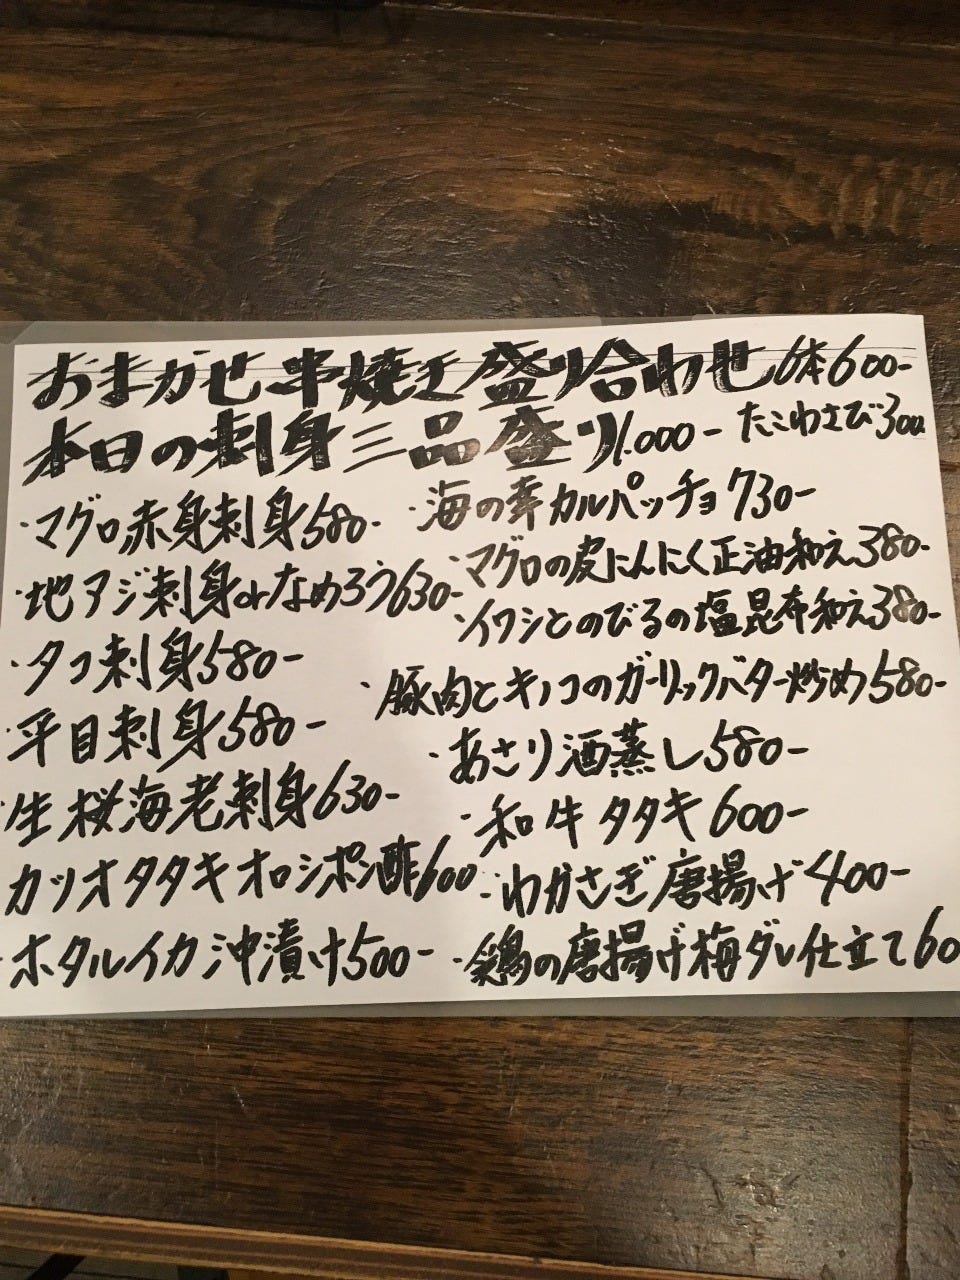 おまかせ串焼き盛り合わせ6本600-
本日の刺身三品盛り1.000-
たこわさび300
・マグロ赤身刺身580-
・地アジ刺身orなめろう630-
・タコ刺身580-
・平目刺身580-
・生桜海老刺身630-
カツオタタキオロシポン酢600
・ホタルイカ沖漬け500-
・海の幸カルパッチョ730-
・マグロの皮にんにく正油和え380-
・イワシとのびるの塩昆布和え380-
・豚肉とキノコのガーリックバター炒め580-
・あさり酒蒸し580-
・和牛タタキ600-
・わかさぎ唐揚げ400-
・鶏の唐揚げ梅ダレ仕立て60